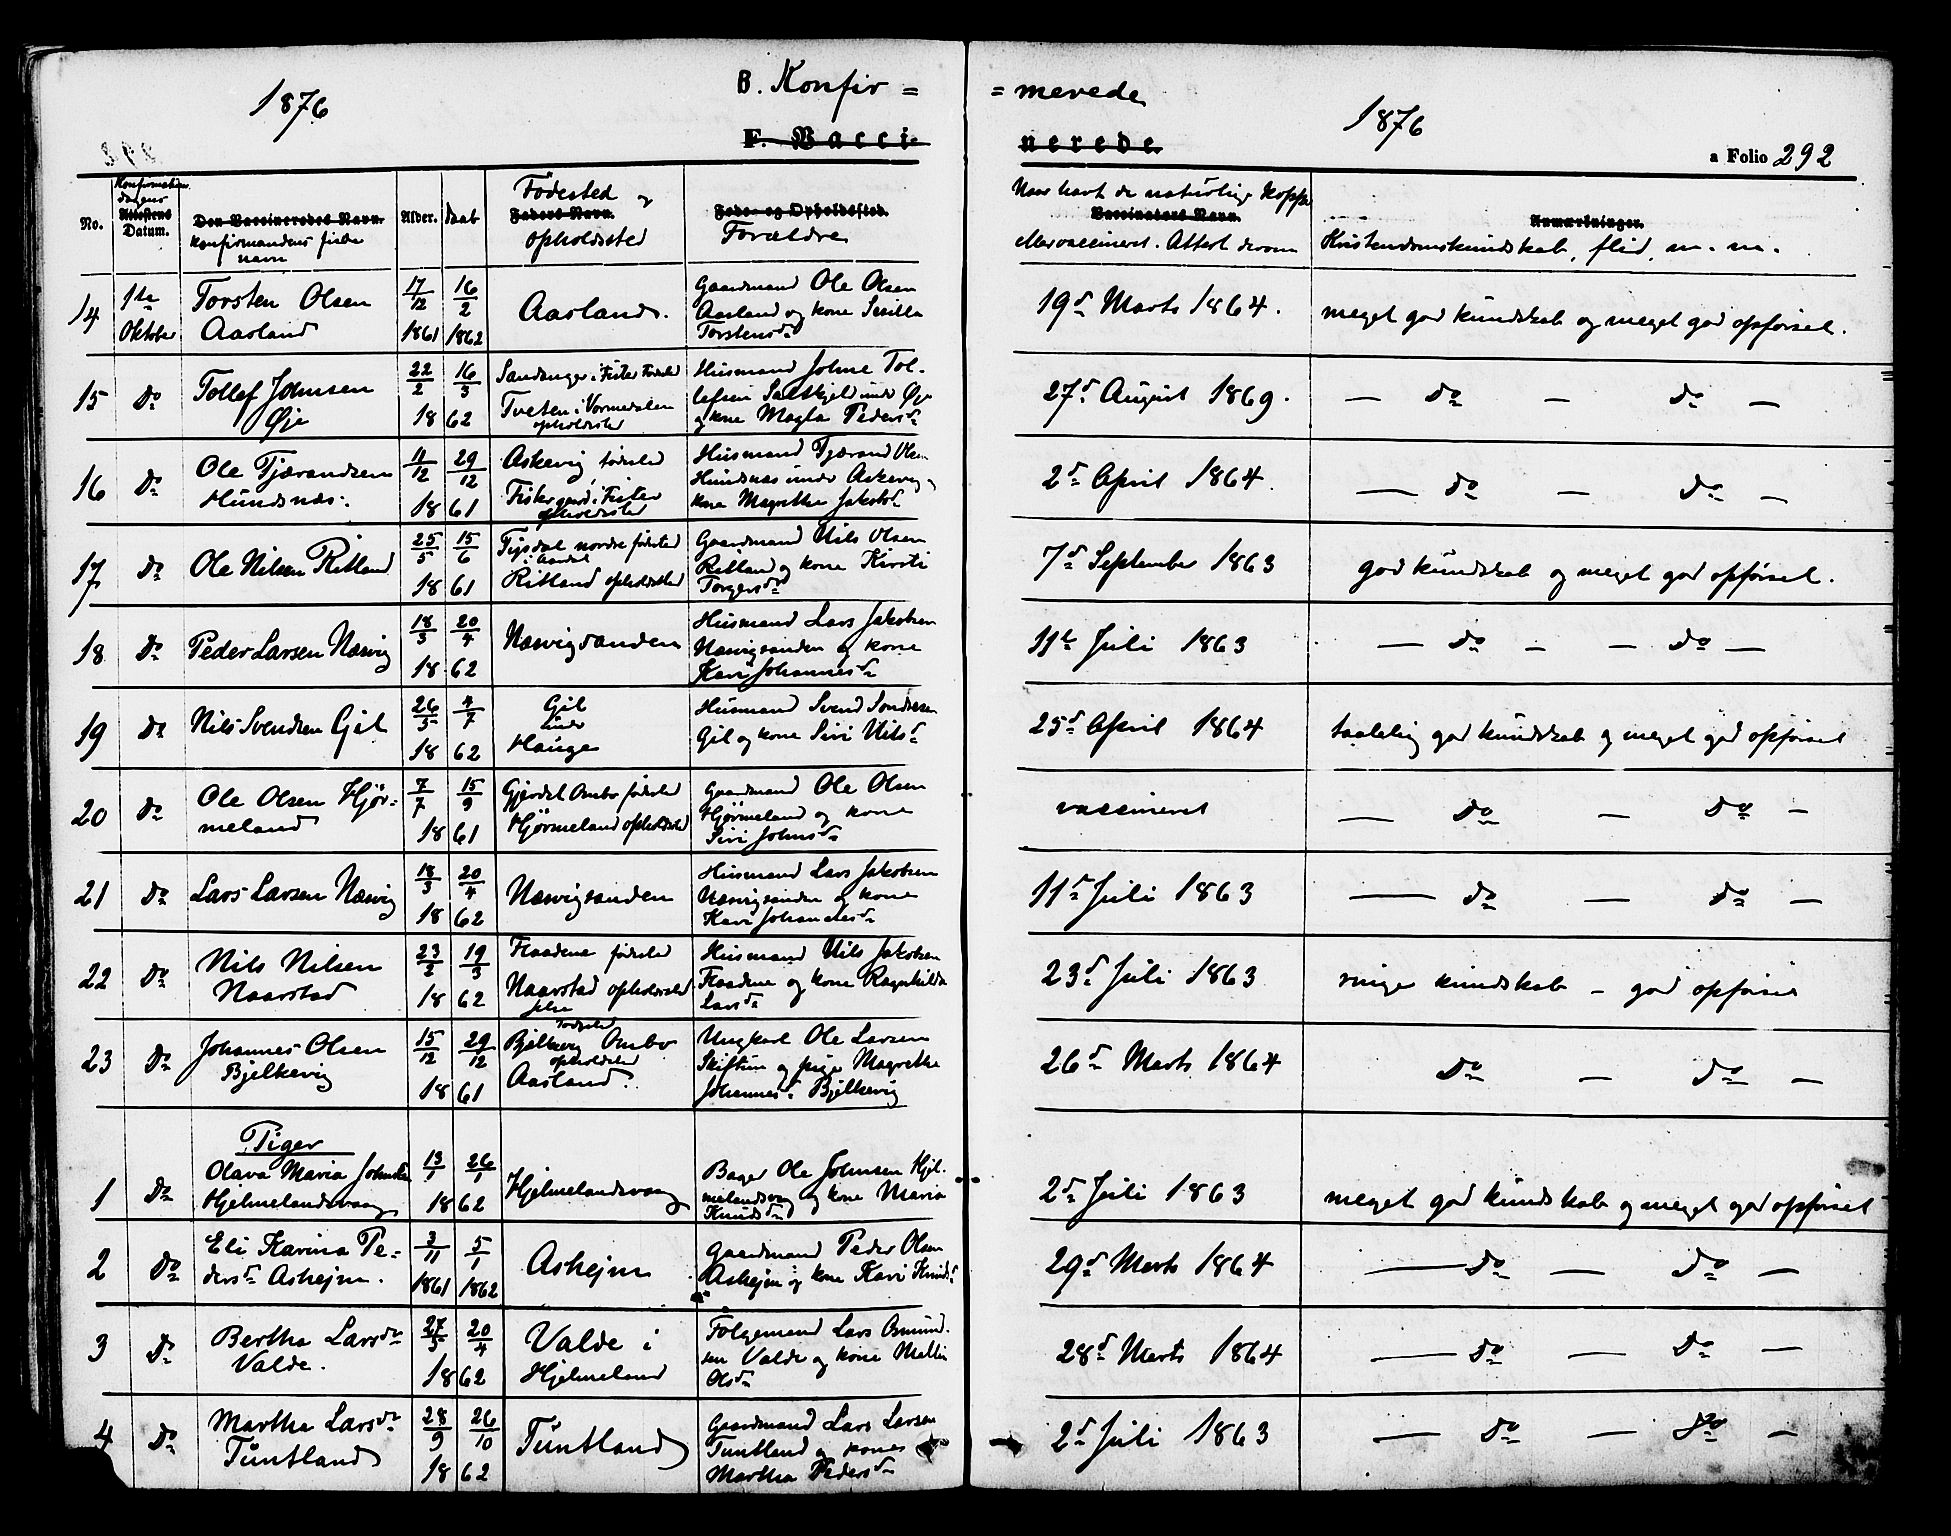 1876
B. Konfir =
= merede
1876
F. Vacci-
nerede.
a Folio 292
No.
Konfirmations
dagens
Attestens
Datum.
Den Vaccineredes Navn.
Konfirmandens fulde
navn
Alder.
Daab
Fødested og
Faders Navn.
opholdssted
Føde- og Opholdssted.
Forældre
Naar havt de naturlige Kopper
Vaccinators Navn.
eller vaccineret. Attest derom
Anmærkninger.
Kristendomskundskab, flid, m. m.
14
1ste
Oktober
Torsten Olsen
Aarland
17/12
1861
16/2
1862
Aarland.
Gaardmand Ole Olsen
Aarland og kone Sisilla
Torstensd
19d Marts 1864.
meget god kundskab og meget god opførsel.
15
Do
Tollef Johnsen
Øje
22/2 16/3
18 62
Sandanger i Fister Fødested
Tveten i Vormedalen
opholdssted
Husmand Johne Tol-
lefsen Saltkjel under Øje
og kone Magla Pedersd
27d August 1869.
— do — do —
16
Do
Ole Tjærandsen
Hundsnæs.
11/12 29/12
18 61
Askevig fødested
Fistergaard i Fister
opholdssted
Husmand Tjærand Olsen
Hundsnæs under Askevig
kone Magrethe Jakobsd
2d April 1864.
— do — do —
17
Do
Ole Nilsen Ritland
25/5 15/6
18 61
Tysdal nordre fødested
i Aardal
Ritland opholdssted
Gaardmand Nils Olsen
Ritland og kone Kirsti
Torgersd
7d September 1863
god kundskab og meget god opførsel.
18
Do
Peder Larsen Næsvig
18/3 20/4
18 62
Næsvigsanden
Husmand Lars Jakobsen
Næsvigsanden og kone
Kari Johannesd
11te Juli 1863
— do — — do —
19
Do
Nils Svendsen Gil
26/5 4/7
18 62
Gil
under
Hauge
Husmand Svend Sondresen
Gil og kone Siri Nilsd
25d April 1864
taalelig god kundskab og meget god opførsel
20
Do
Ole Olsen Hjør-
meland
7/7 15/9
18 61
Gjerdet Ombo fødested
Hjørmeland opholdssted
Gaardmand Ole Olsen
Hjørmeland og kone
Siri Johnsd
vaccineret
— do — do —
21
Do
Lars Larsen Næsvig
18/3 20/4
18 62
Næsvigsanden
Husmand Lars Jakobsen
Næsvigsanden og kone
Kari Johannesd
11d Juli 1863
— do — do —
22
Do
Nils Nilsen
Naarstad
23/2 19/3
18 62
Flaadene fødested
Naarstad opholdssted
Husmand Nils Jakobsen
Flaadene og kone Ragnhilda
Larsd
23d Juli 1863
ringe kundskab – god opførsel
23
Do
Johannes Olsen
Bjelkevig
15/12 29/12
18 61
fødested
Bjelkevig Ombo
opholdssted
Aarland.
Ungkarl Ole Larsen
Skiftun og pige Magrethe
Johannesd. Bjelkevig
26d Marts 1864
do — do —
Piger
1
Do
Olava Maria Johnsen
Hjelmelandsvaag
13/1 26/1
18 62
Hjelmelandsvaag
Bager Ole Johnsen Hjel-
melandsvag og kone Maria
Knudsd
2d Juli 1863
meget god kundskab og meget god opførsel
2
Do
Eli Karina Pe-
dersd Ashejm.
3/11 5/1
1861 1862
Ashejm
Gaardmand Peder Olsen
Ashejm og kone Kari Knudsd
29d Marts 1864
— do — do —
3
Do
Bertha Larsd
Valde.
27/3 20/4
18 62
Valde i
Hjelmeland
Følgemand Lars Osmund-
sen Valde og kone Mallin
Olsd
28d Marts 1864
— do — do —
4
Do
Martha Larsd
Tuntland
28/9 26/10
18 62
Tuntland
Gaardmand Lars Larsen
Tuntland og kone
Martha Pedersd
2d Juli 1863
— do — do —